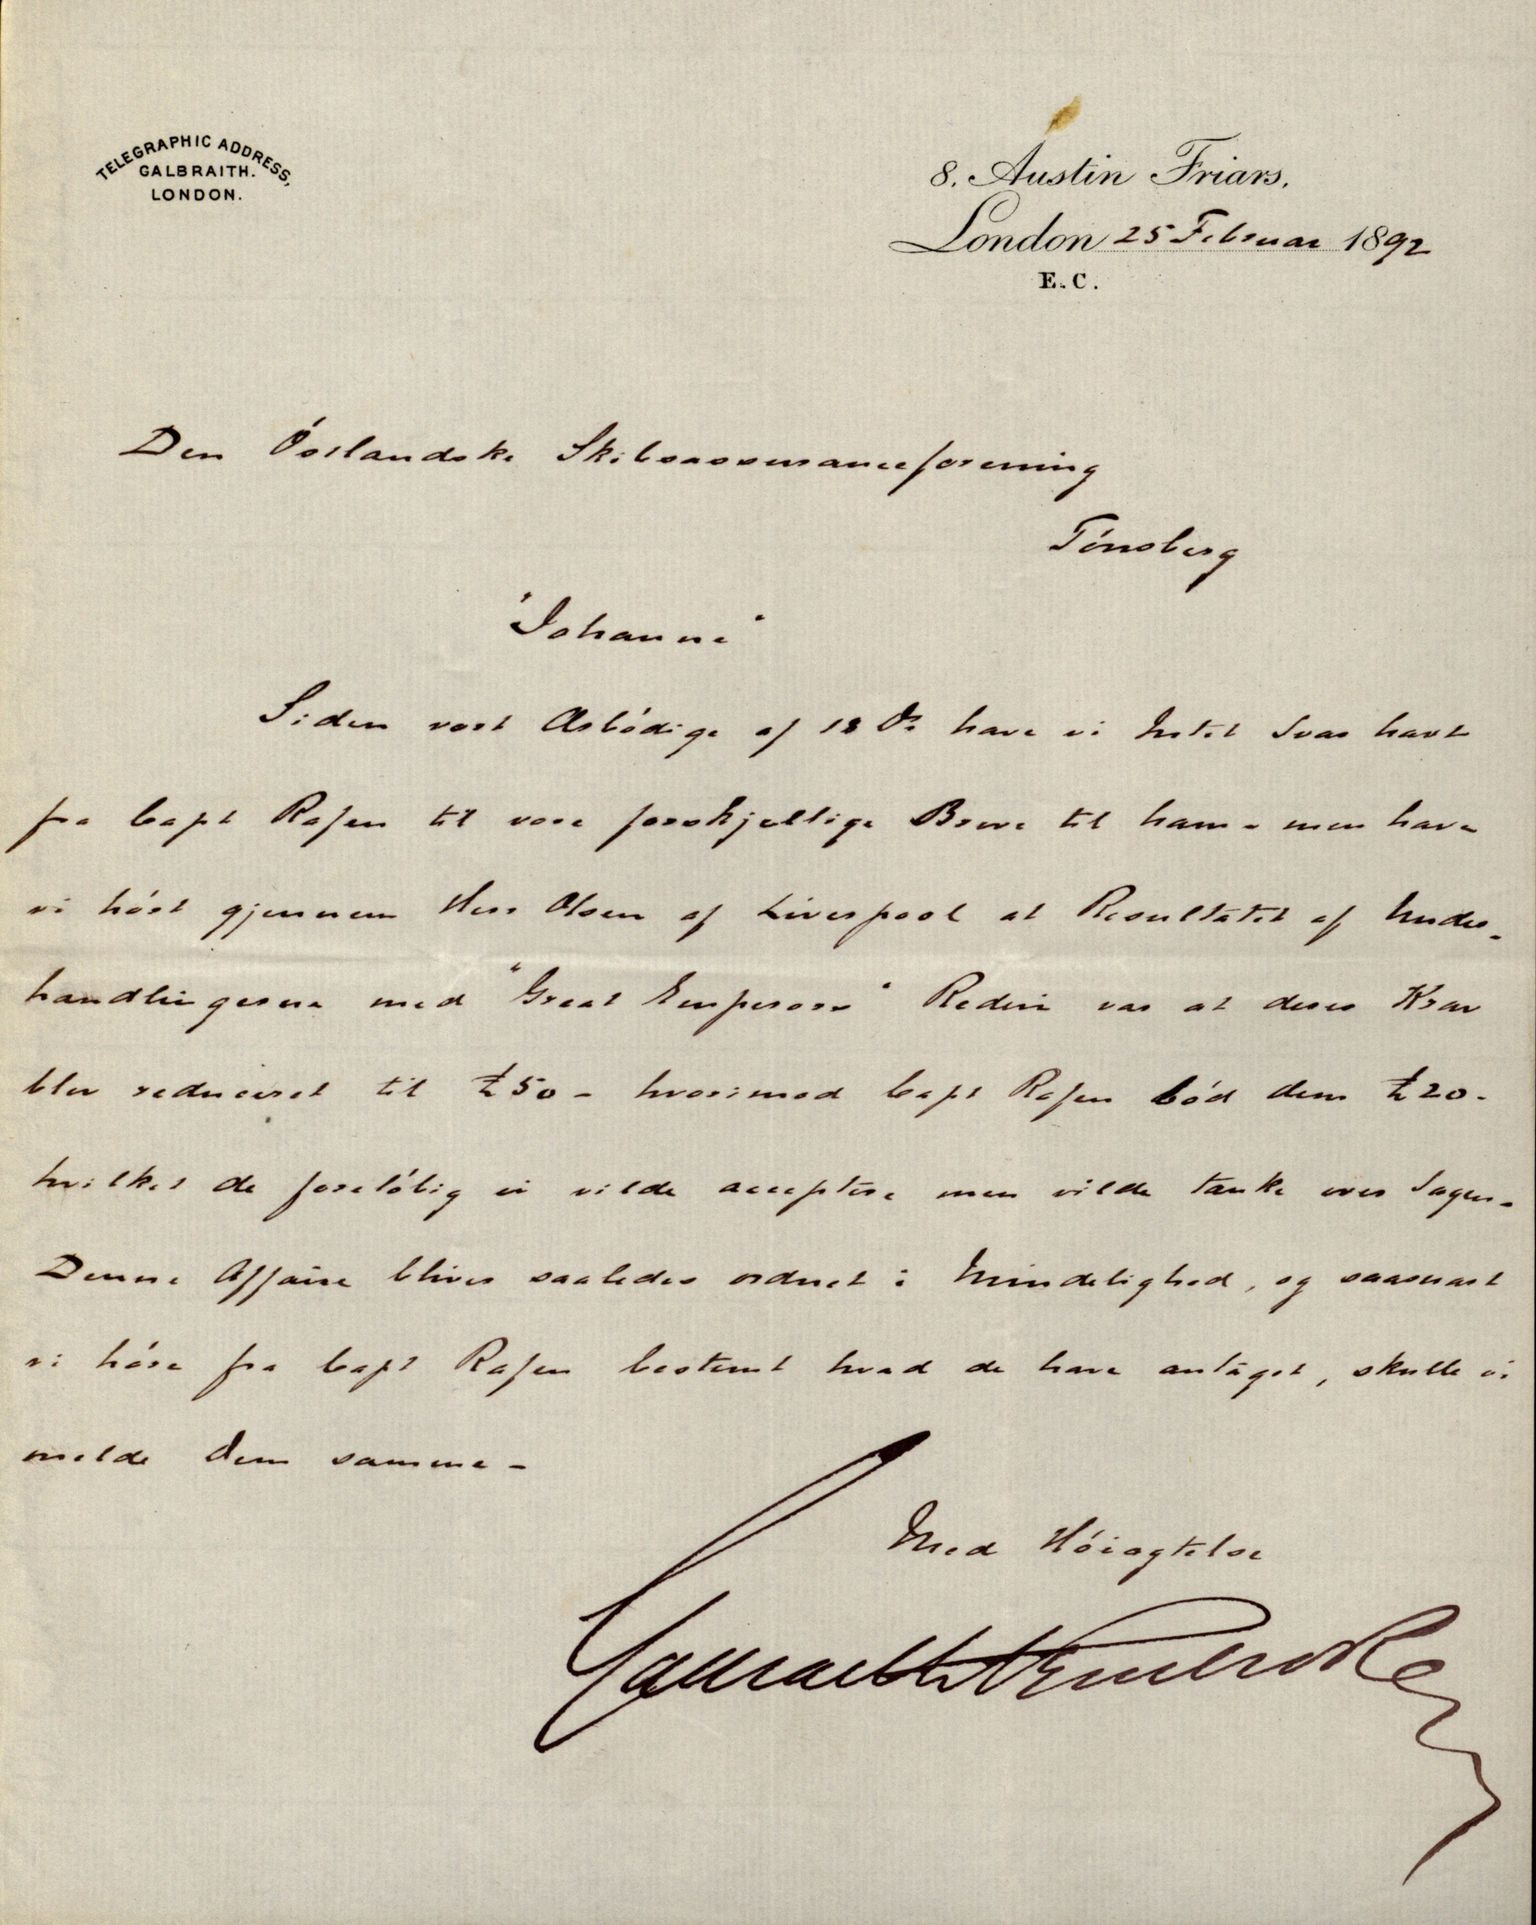 TELEGRAPHIC ADDRESS,
GALBRAITH.
LONDON.
8. Austin Friars.
London 25 Februar 1892
E.C.
Den Östlandske Skibsassuranceforening
Tönsberg
"Johanne"
Siden vort Ærbödige af 18 Ds have vi Intet Svar havt
fra Capt Rafen til vore forskjellige Breve til ham - men have
vi hört gjennem Herr Olsen af Liverpool at Resultatet af Under-
handlingerne med "Great Emperors" Rederi var at deres Krav
blev reduceret til £50 - hvorimod Capt Rafen bód dem £20 -
hvilket de forelöbig ei vilde acceptere men vilde tænke over Sagen -
Denne Affaire bliver saaledes ordnet i Mindelighed, og saasnart
vi höre fra Capt Rafen bestemt hvad de have antaget, skulle vi
melde Dem samme -
Med Höiagtelse
Galbraith Pembroke